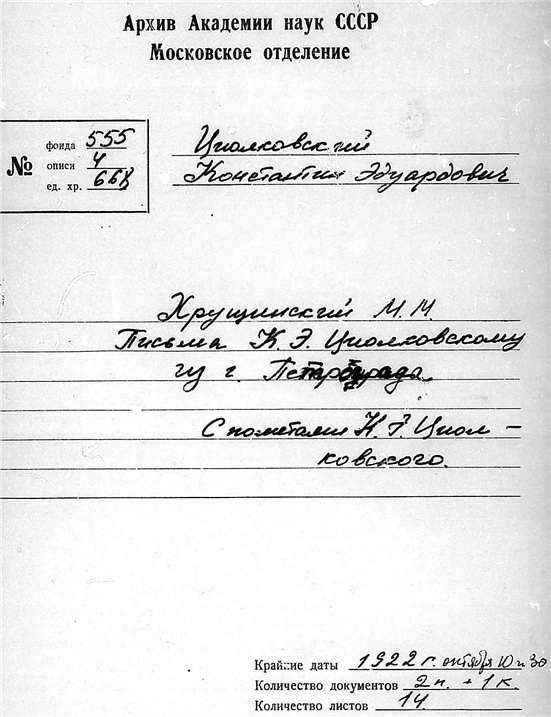 Архив Академии наук СССР
Московское отделение
№
фонда 555
описи 4
ед. хр.
Циолковский
Константин Эдуардович
Хрущинский М. М.
Письма К. Э. Циолковскому
из г. Петрограда.
С пометами К. Э. Циол-
ковского.
Крайние даты 1922 г. октября 10 и 30
Количество документов 2 п. + 1 к.
Количество листов 14.